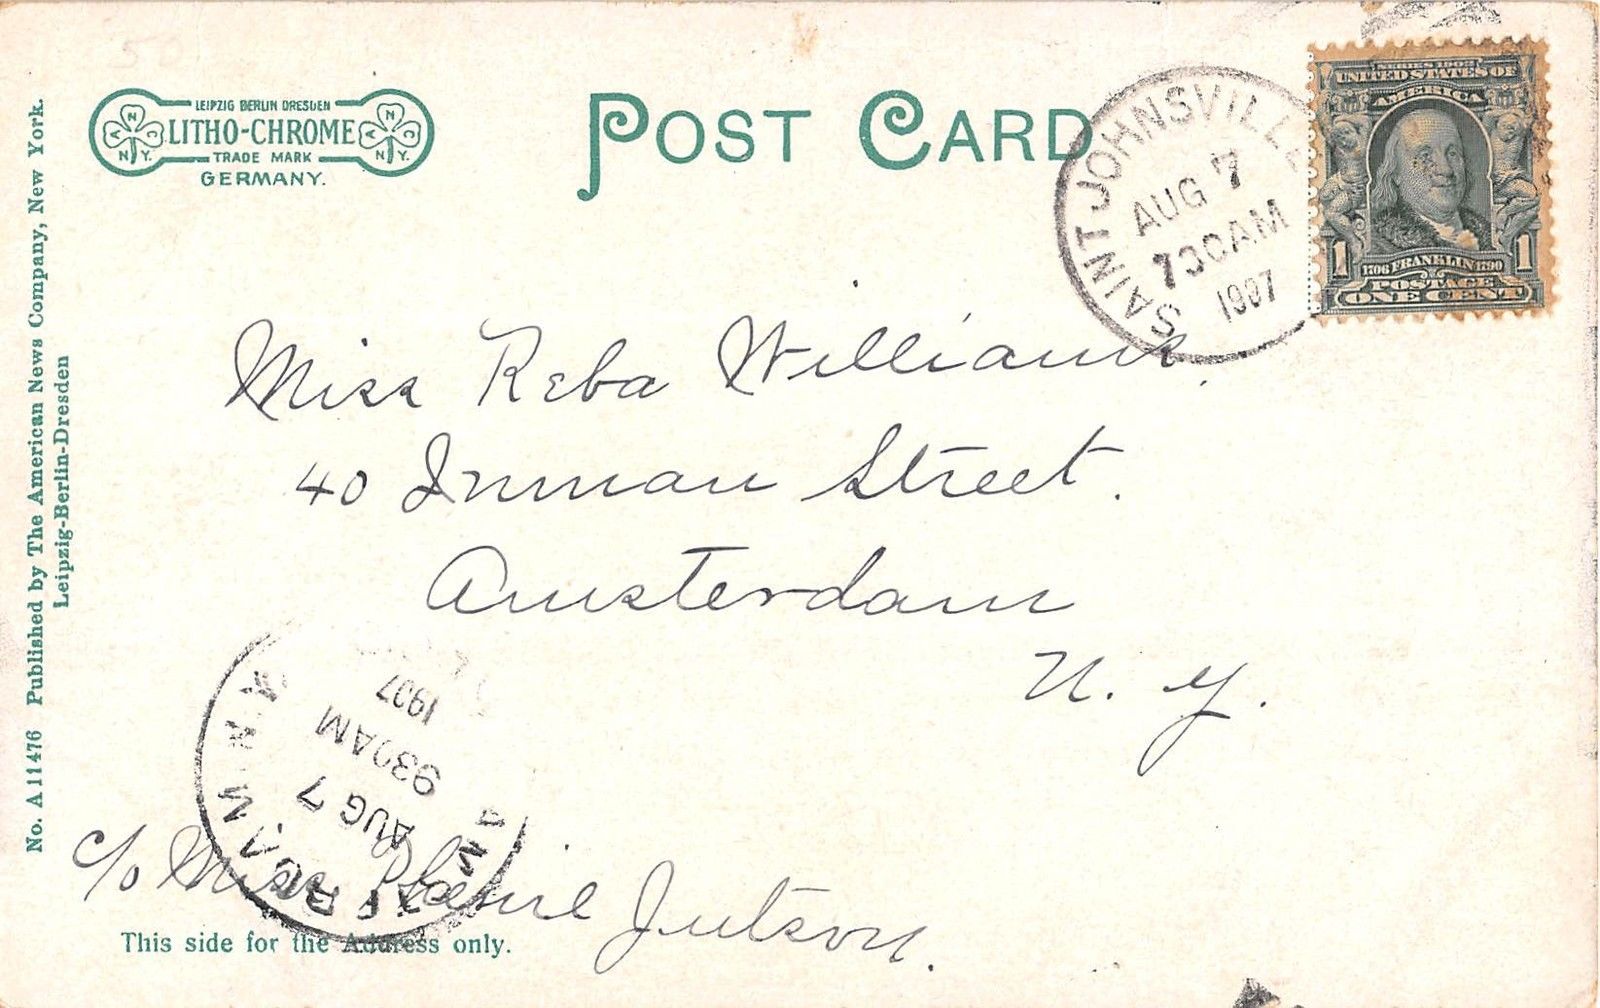 LEIPZIG BERLIN DRESDEN
A N C N.Y. LITHO-CHROME A N C N.Y.
TRADE MARK
GERMANY.
POST CARD
SAINT JOHNSVILLE
AUG 7
730AM
1907
SERIES 1902
UNITED STATES OF
AMERICA
1 1706 FRANKLIN 1790 1
POSTAGE
ONE CENT
No. A 11476 Published by The American News Company, New York.
Leipzig-Berlin-Dresden
Miss Reba Williams.
40 Inman Street.
Amsterdam
N. Y.
AMSTERDAM N.Y.
AUG 7
930AM
1907
c/o Miss Jutson.
This side for the Address only.